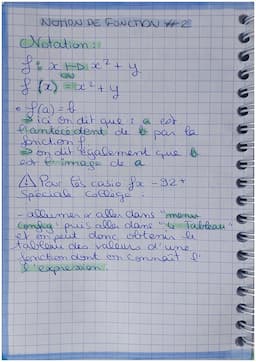 NOTION DE FONCTION #2
Notation :
f : x ↦ x² + y
ou
f (x) = x² + y
• f(a) = b
→ ici on dit que : a est
l'antécédent de b par la
fonction f
→ on dit également que b
est l'image de a
⚠ Pour les casio fx - 92+
spéciale collège :
- allumer et aller dans "menu
config" puis aller dans "Tableau"
et on peut donc obtenir le
tableau des valeurs d'une
fonction dont on connaît l'
l'expression.